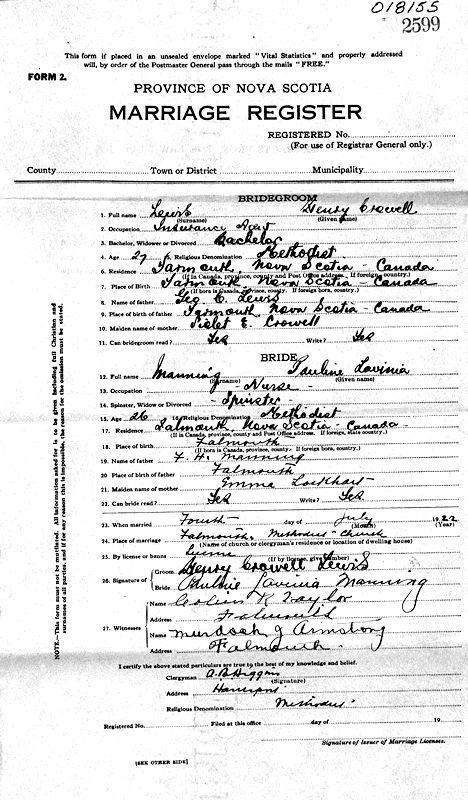 018155
2599
This form if placed in an unsealed envelope marked "Vital Statistics" and properly addressed
will, by order of the Postmaster General pass through the mails "FREE."
FORM 2.
PROVINCE OF NOVA SCOTIA
MARRIAGE REGISTER
REGISTERED No.
(For use of Registrar General only.)
County Town or District Municipality
BRIDEGROOM
1. Full name Lewis Henry Crowell
(Surname) (Given name)
2. Occupation Insurance Agent
3. Bachelor, Widower or Divorced Bachelor
4. Age 27 5. Religious Denomination Methodist
6. Residence Yarmouth Nova Scotia - Canada
(If in Canada, province, county and Post Office address. If foreign country.)
7. Place of Birth Yarmouth Nova Scotia - Canada
(If born in Canada, province, county. If foreign born, country.)
8. Name of father Geo C. Lewis
9. Place of birth of father Yarmouth Nova Scotia - Canada
10. Maiden name of mother Violet E. Crowell
11. Can bridegroom read? Yes Write? Yes
BRIDE
12. Full name Manning Pauline Lavinia
(Surname) (Given name)
13. Occupation - Nurse -
14. Spinster, Widow or Divorced - Spinster -
15. Age 26 16. Religious Denomination Methodist
17. Residence Falmouth Nova Scotia - Canada -
(If in Canada, province, county and Post Office address. If foreign state, country.)
18. Place of birth Falmouth
(If born in Canada, province, county. If foreign born, country.)
19. Name of father F. H. Manning
20. Place of birth of father Falmouth
21. Maiden name of mother Emma Lockhart
22. Can bride read? Yes Write? Yes
23. When married Fourth day of July 1922
(Month) (Year)
24. Place of marriage Falmouth, Methodist Church
(Name of church or clergyman's residence or location of dwelling house)
25. By license or banns
(If by license, give number)
26. Signature of Groom Henry Crowell Lewis
Bride Pauline Lavinia Manning
27. Witnesses Name K Taylor
Address Falmouth
Name Murdoch J Armstrong
Address Falmouth
I certify the above stated particulars are true to the best of my knowledge and belief.
Clergyman A. B. Higgins
(Signature)
Address Hantsport
Religious Denomination Methodist
Registered No. Filed at this office day of 19
Signature of Issuer of Marriage Licenses.
[SEE OTHER SIDE]
NOTE.—This form must not be mutilated. All information asked for is to be given including full Christian and
Surnames of all parties, and if for any reason this is impossible, the reason for the omission must be stated.